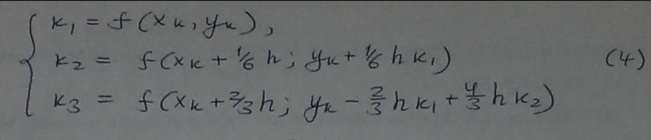 k₁ = f(xₖ, yₖ),
k₂ = f(xₖ + 1/6 h; yₖ + 1/6 h k₁) (4)
k₃ = f(xₖ + 2/3 h; yₖ - 2/3 h k₁ + 4/3 h k₂)